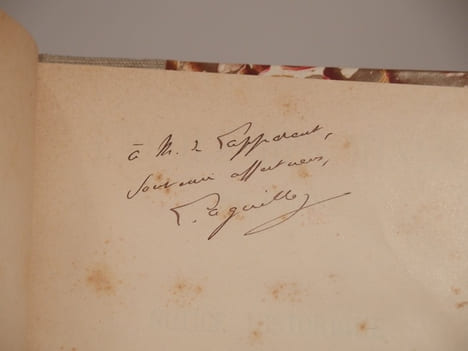 à M. de Lapparent,
Souvenir affectueux,